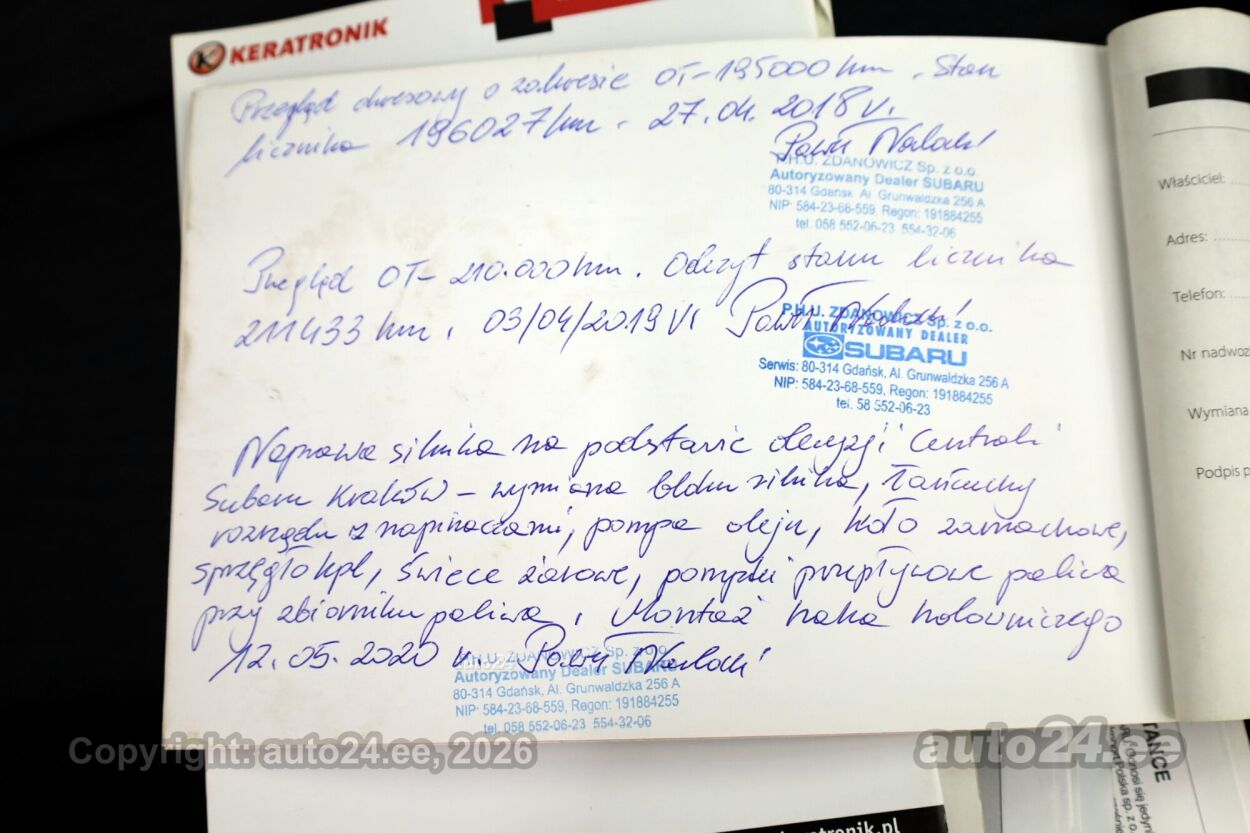 KERATRONIK
Przegląd okresowy o zakresie OT-195000km. Stan
licznika 196027km. 27.04.2018r.
P.H.U. ZDANOWICZ Sp. z o.o.
Autoryzowany Dealer SUBARU
80-314 Gdańsk, Al. Grunwaldzka 256 A
NIP: 584-23-68-559, Regon: 191884255
tel. 058 552-06-23 554-32-06
Przegląd OT-210.000km. Odczyt stanu licznika
211433km. 03/04/2019r.
P.H.U. ZDANOWICZ Sp. z o.o.
AUTORYZOWANY DEALER
SUBARU
Serwis: 80-314 Gdańsk, Al. Grunwaldzka 256 A
NIP: 584-23-68-559, Regon: 191884255
tel. 58 552-06-23
Naprawa silnika na podstawie decyzji Centrali
Subaru Kraków – wymiana bloku silnika, łańcuchy
rozrządu z napinaczami, pompa oleju, koło zamachowe,
sprzęgło kpl, świece żarowe, pompki przepływowe paliwa
przy zbiorniku paliwa, Montaż haka holowniczego
12.05.2020 r. Paweł
P.H.U. ZDANOWICZ Sp. z o.o.
Autoryzowany Dealer SUBARU
80-314 Gdańsk, Al. Grunwaldzka 256 A
NIP: 584-23-68-559, Regon: 191884255
tel. 058 552-06-23 554-32-06
Właściciel:
Adres:
Telefon:
Nr nadwoz
Wymiana
Podpis p
Copyright: auto24.ee, 2026
auto24.ee